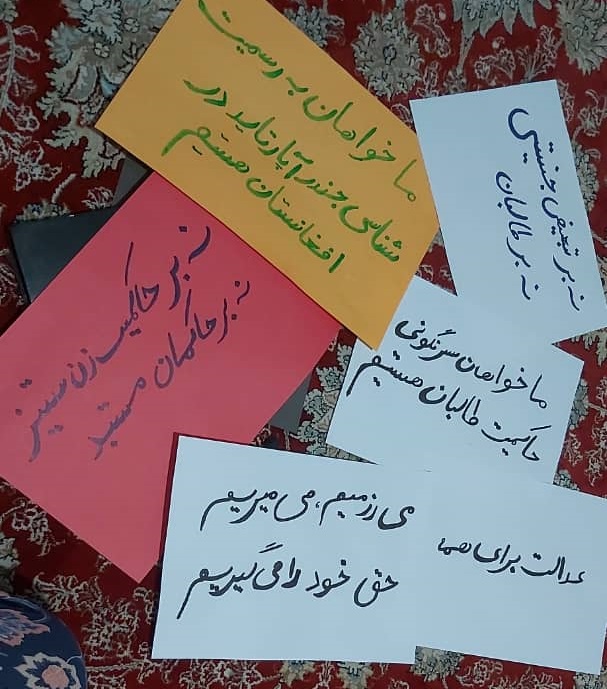 ما خواهان به رسمیت
شناسی جندر آپارتاید در
افغانستان هستیم
نه بر تبعیض جنسیتی
نه بر طالبان
نه بر حاکمیت زن ستیز
نه بر حاکمان مستبد
ما خواهان سرنگونی
حاکمیت طالبان هستیم
می رزمیم، می میریم
حق خود را می گیریم
عدالت برای همه